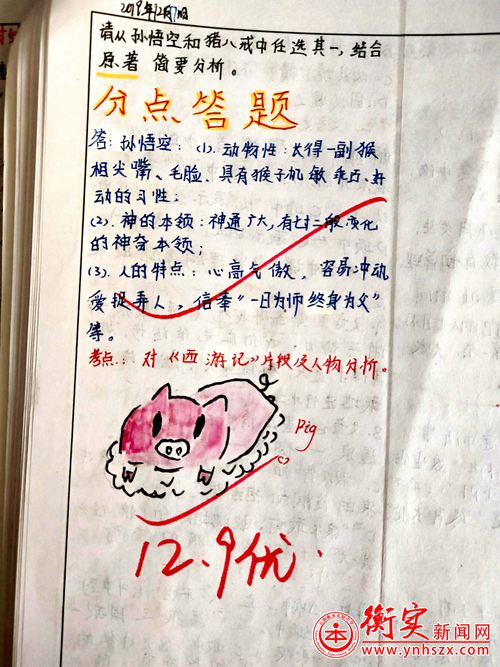 2019年12月7日
请从孙悟空和猪八戒中任选其一,结合
原著 简要分析。
分点答题
答:孙悟空: (1). 动物性:长得一副猴
相尖嘴、毛脸、具有猴子机敏乖巧、好
动的习性;
(2). 神的本领:神通广大,有七十二般变化
的神奇本领;
(3). 人的特点:心高气傲,容易冲动
爱捉弄人,信奉“一日为师终身为父”
等。
考点:对《西游记》片段及人物分析。
Pig
12.9优.
衡实新闻网
www.ynhszx.com